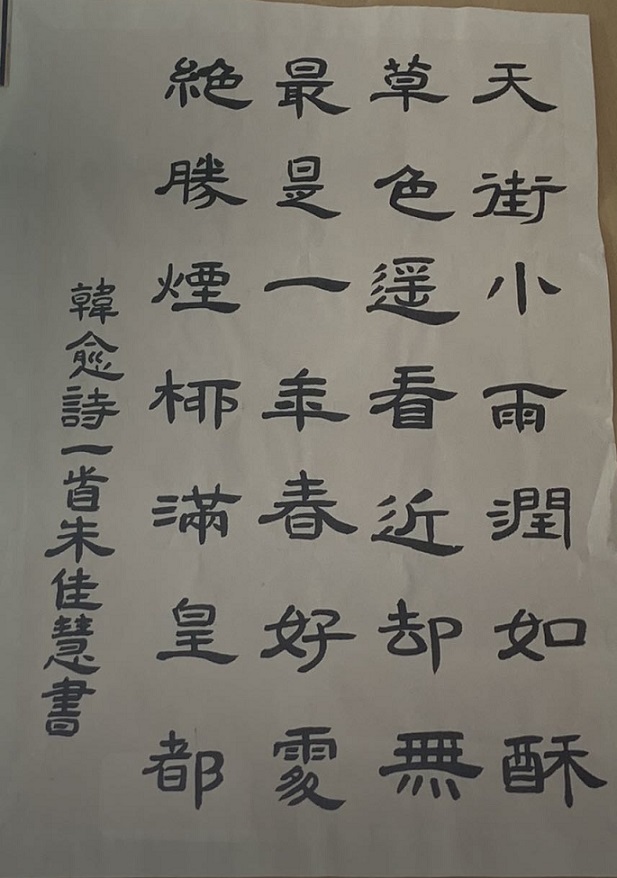 天街小雨潤如酥
草色遥看近却無
最是一年春好處
絶勝煙柳滿皇都
韓愈詩一首朱佳慧書